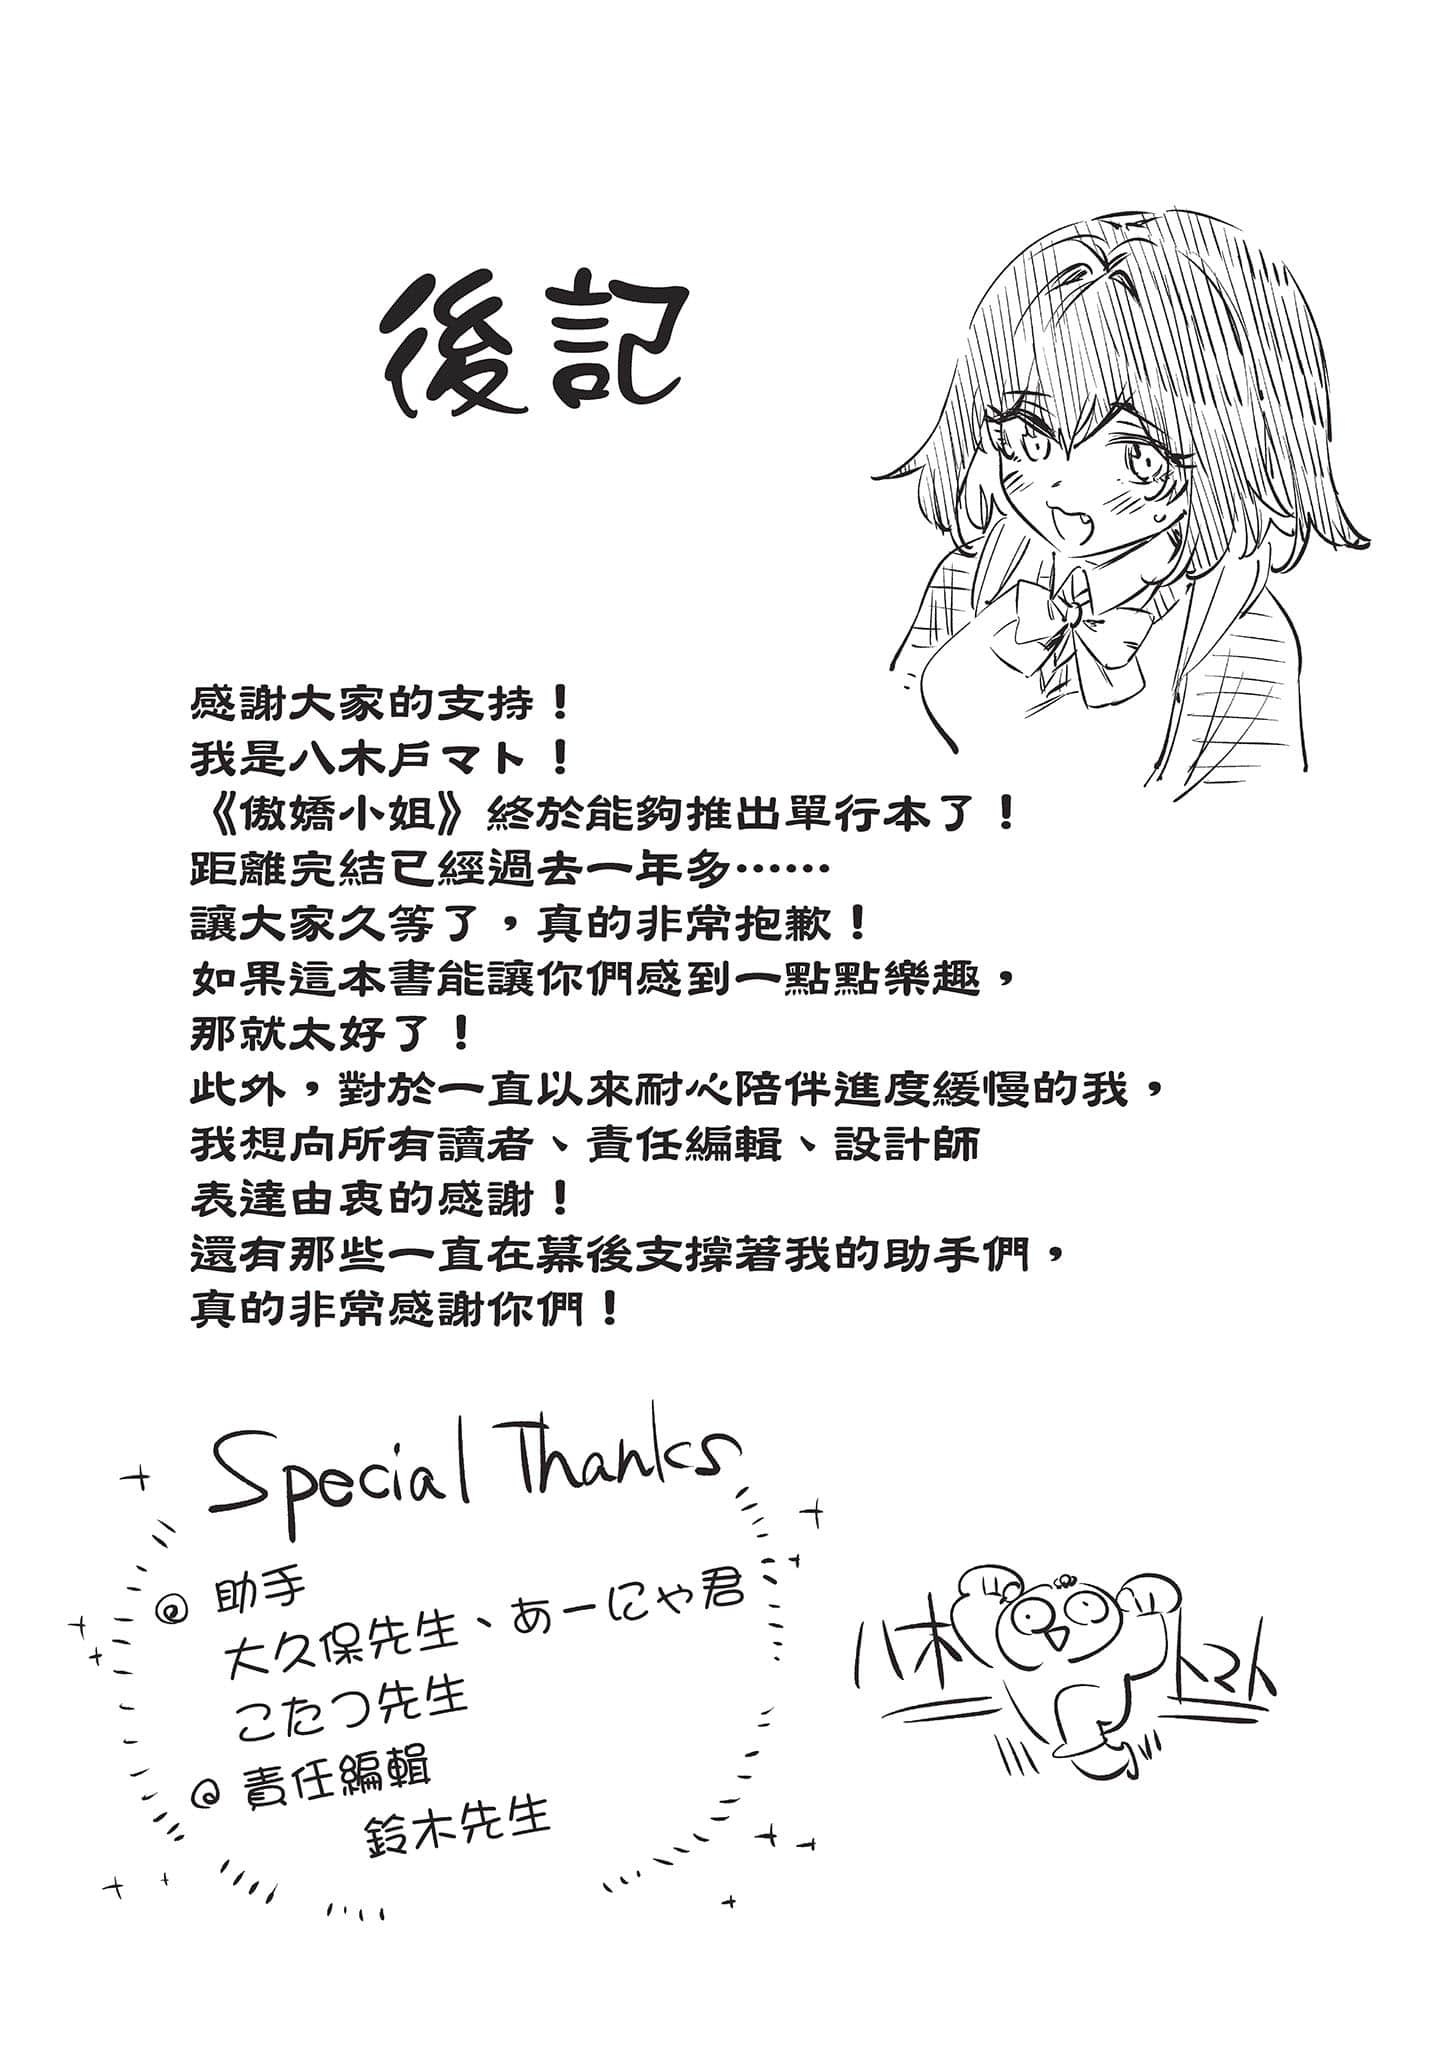 後記
感謝大家的支持！
我是八木戶マト！
《傲嬌小姐》終於能夠推出單行本了！
距離完結已經過去一年多……
讓大家久等了，真的非常抱歉！
如果這本書能讓你們感到一點點樂趣，
那就太好了！
此外，對於一直以來耐心陪伴進度緩慢的我，
我想向所有讀者、責任編輯、設計師
表達由衷的感謝！
還有那些一直在幕後支撐著我的助手們，
真的非常感謝你們！
Special Thanks
@ 助手
大久保先生、あーにゃ君
こたつ先生
@ 責任編輯
鈴木先生
八木 トマト